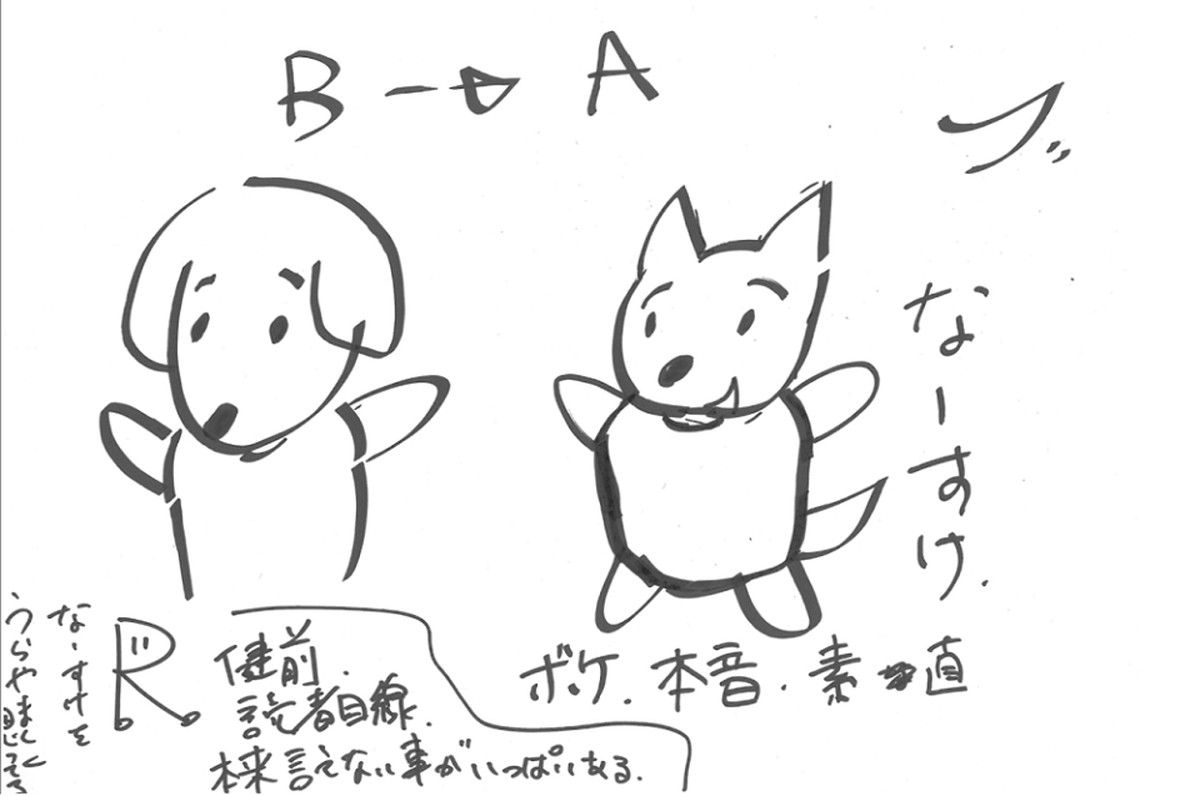 B → A
なーすけ.
ボケ. 本音. 素直
R
健前.
読者目線.
本来言えない事がいっぱいある.
なーすけを
うらやましく
感じてる